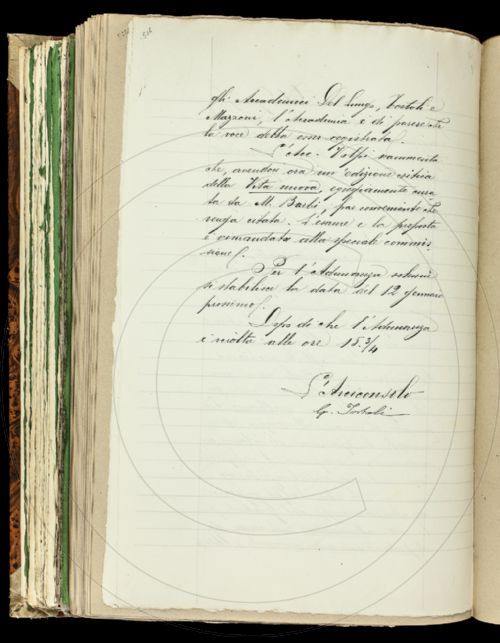 516
gli Accademici Del Lungo, Tortoli e
Mazzoni, l'Accademia è di parere che
la voce debba esser registrata.
L'Acc. Volpi rammenta
che, avendosi ora un'edizione critica
della Vita nuova, egregiamente cura
ta da M. Barbi, par conveniente che
venga citata. L'esame e la proposta
è rimandata alla speciale commis
sione.
Per l'Adunanza solenne
si stabilisce la data del 12 gennaro
prossimo.
Dopo di che l'Adunanza
è sciolta alle ore 15 3/4
L'Arciconsolo
G. Tortoli